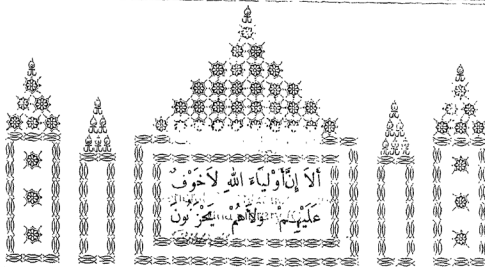 أَلاَ إِنَّ أَوْلِيَاءَ اللهِ لاَخَوْفٌ
عَلَيْهِمْ وَلاَهُمْ يَحْزَنُونَ